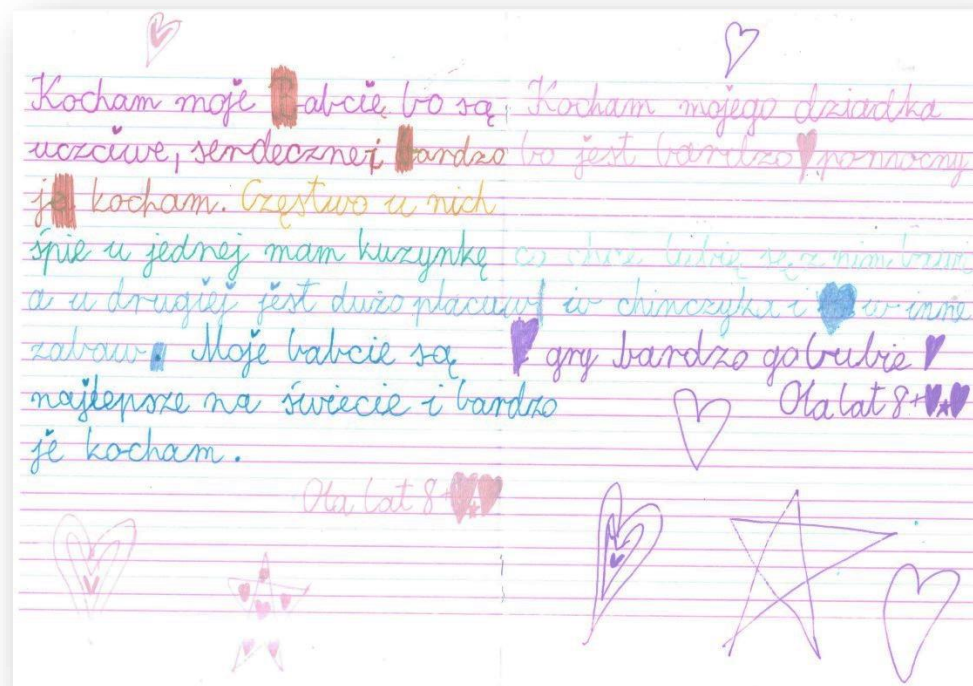 Kocham moje Babcie bo są
uczciwe, serdeczne i bardzo
je kocham. Częstwo u nich
śpie u jednej mam kuzynkę
a u drugiej jest dużo placuw
zabaw. Moje babcie są
najlepsze na świecie i bardzo
je kocham.
Ola lat 8+
Kocham mojego dziadka
bo jest bardzo pomocny
co lubię się z nim
i w chinczyka i w inne
gry bardzo go lubie
Ola lat 8+